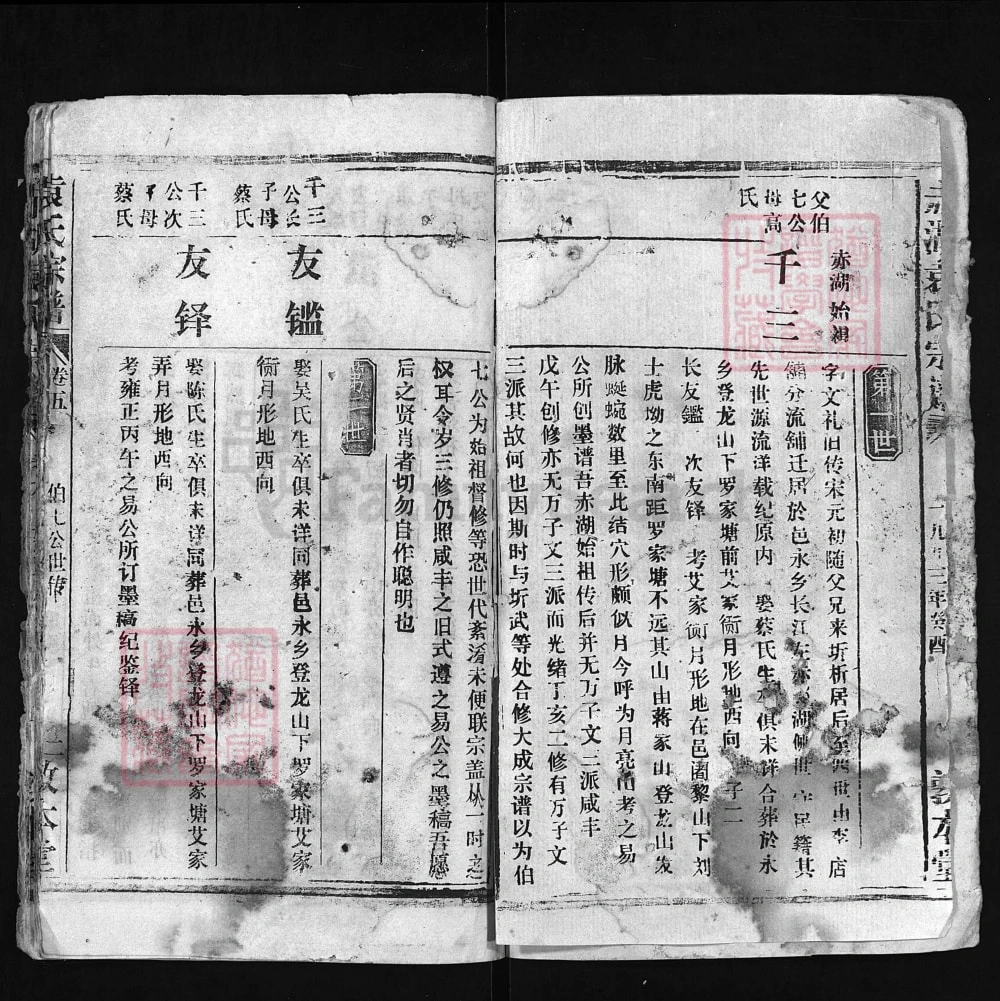 父伯
七公
母高
氏
赤湖始祖
千三
第一世
字文礼旧传宋元初随父兄来圻析居后至四世由李店
铺分流铺迁居於邑永乡长江左赤湖
先世源流洋载纪原内 娶蔡氏生卒俱未详合葬於永
乡登龙山下罗家塘前艾家衕月形地西向 子二
长友鑑 次友铎 考艾家衕月形地在邑阇黎山下刘
士虎坳之东南距罗家塘不远其山由蒋家山登龙山发
脉蜒蜿数里至此结穴形颇似月今呼为月亮山考之易
公所创墨谱吾赤湖始祖传后并无万子文三派咸丰
戊午创修亦无万子文三派而光绪丁亥二修有万子文
三派其故何也因斯时与圻武等处合修大成宗谱以为伯
七公为始祖督修等恐世代紊淆未便联宗盖从一时之
权耳令岁三修仍照咸丰之旧式遵之易公之墨稿吾愿
后之贤肖者切勿自作聪明也
第二世
千三
公长
子母
蔡氏
友鑑
娶吴氏生卒俱未详同葬邑永乡登龙山下罗家塘艾家
衕月形地西向
千三
公次
子母
蔡氏
友铎
娶陈氏生卒俱未详同葬邑永乡登龙山下罗家塘艾家
弄月形地西向
考雍正丙午之易公所订墨稿纪鉴铎
袁氏宗谱
卷五
伯七公世传
敦本堂